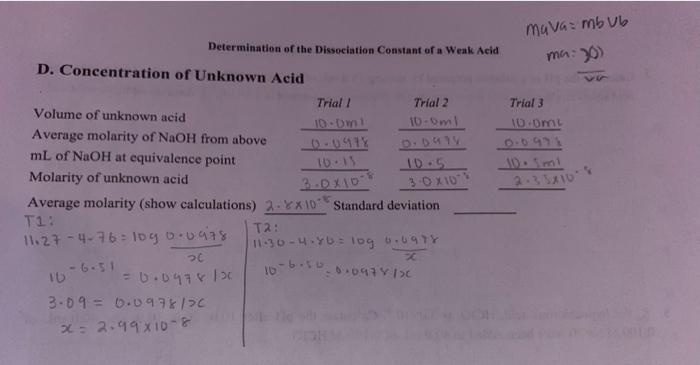 maVa = mbVb
Determination of the Dissociation Constant of a Weak Acid
ma =
va
D. Concentration of Unknown Acid
Trial 1 Trial 2 Trial 3
Volume of unknown acid 10.0ml 10.0ml 10.0mL
Average molarity of NaOH from above 0.0978 0.0978 0.0978
mL of NaOH at equivalence point 10.15 10.5 10.5ml
Molarity of unknown acid 3.0x10⁻⁸ 3.0x10⁻⁸ 2.35x10⁻⁸
Average molarity (show calculations) 2.8x10⁻⁸ Standard deviation
T1: T2:
11.27 - 4.76 = log 0.0978 11.30 - 4.80 = log 0.0978
x x
10^-6.51 = 0.0978/x 10^-6.50 = 0.0978/x
3.09 = 0.0978/x
x = 2.99x10⁻⁸